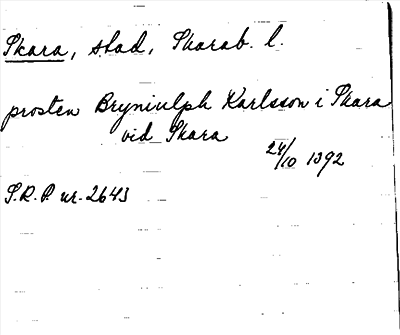 Skara, stad, Skarab. l.
prosten Bryniulph Karlsson i Skara
vid Skara
24/10 1392
S.R.P. nr. 2643